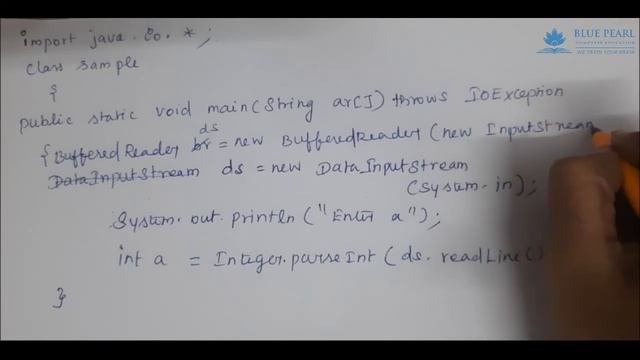 BLUE PEARL
COMPUTER EDUCATION
WE TRAIN YOUR BRAIN
import java.io.*;
class sample
{
public static void main(String ar[]) throws IOException
ds
{ BufferedReader br = new BufferedReader (new InputStream
DataInputStream ds = new DataInputStream
(System.in);
System.out.println("Enter a");
int a = Integer.parseInt(ds.readLine()
}